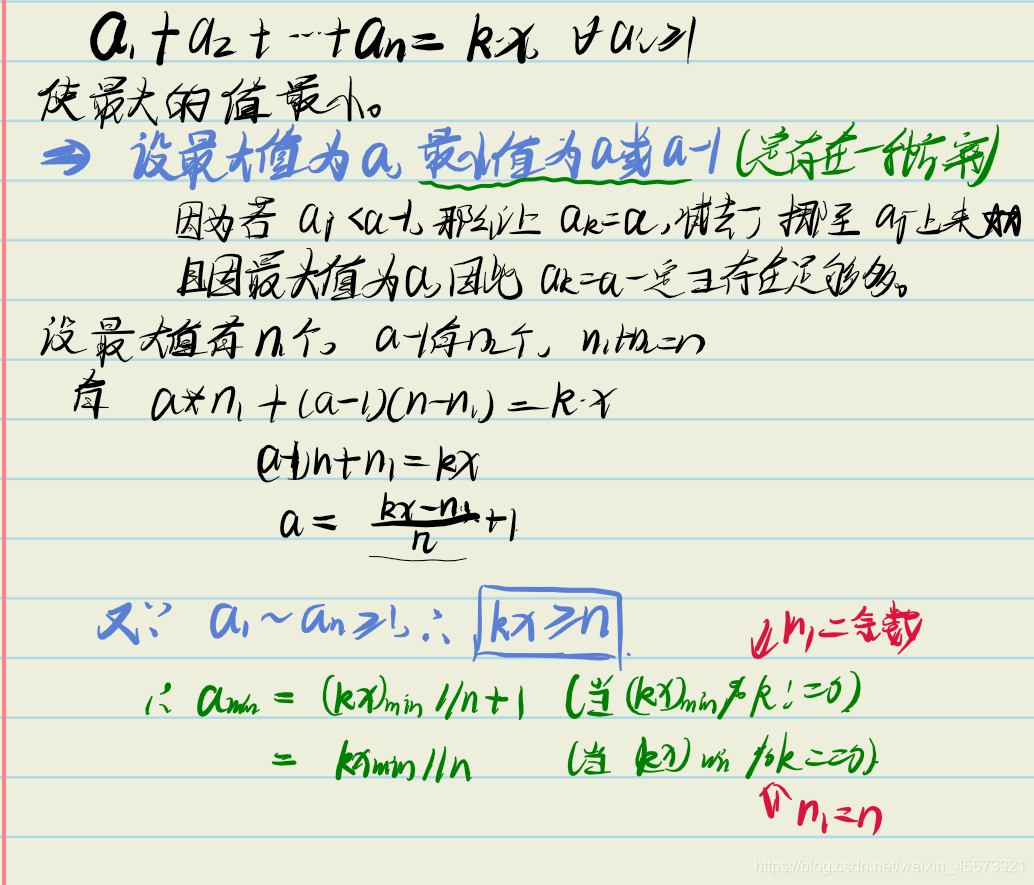 a₁+a₂+…+aₙ= k·x, ∀aᵢ≥1
使最大的值最小。
⇒ 设最大值为a, 最小值为a或a-1 (总存在一种方案)
因为若 aⱼ<a-1, 那么让 aₖ=a, 减去1挪至 aⱼ上来
且因最大值为a, 因此 aₖ=a一定存在足够多。
设最大值有n₁个, a-1有n₂个, n₁+n₂=n
有 a*n₁+(a-1)(n-n₁)=k·x
(a-1)n+n₁=kx
a= (kx-n₁)/n +1
又∵ a₁~aₙ≥1, ∴ kx≥n
n₁=余数
∴ aₘᵢₙ = (kx)ₘᵢₙ//n+1 (当(kx)ₘᵢₙ%k!=0)
= kxₘᵢₙ//n (当(kx)ₘᵢₙ%k==0)
⇑ n₁=n
https://blog.csdn.net/weixin_45573921